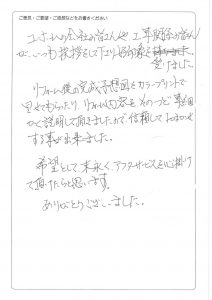 ご意見・ご要望・ご感想などをお書きください
ユーホームの会社の皆さんや工事関係の皆さん
が、いつも挨拶をして下さり好印象を
受けました。
リフォーム後の完成予想図をカラープリントで
見せてもらったり、リフォーム内容をそのつど事細
かく説明して頂きましたので、信頼しておまかせ
する事が出来ました。
希望として末永くアフターサービスを心掛け
て頂けたらと思います。
ありがとうございました。